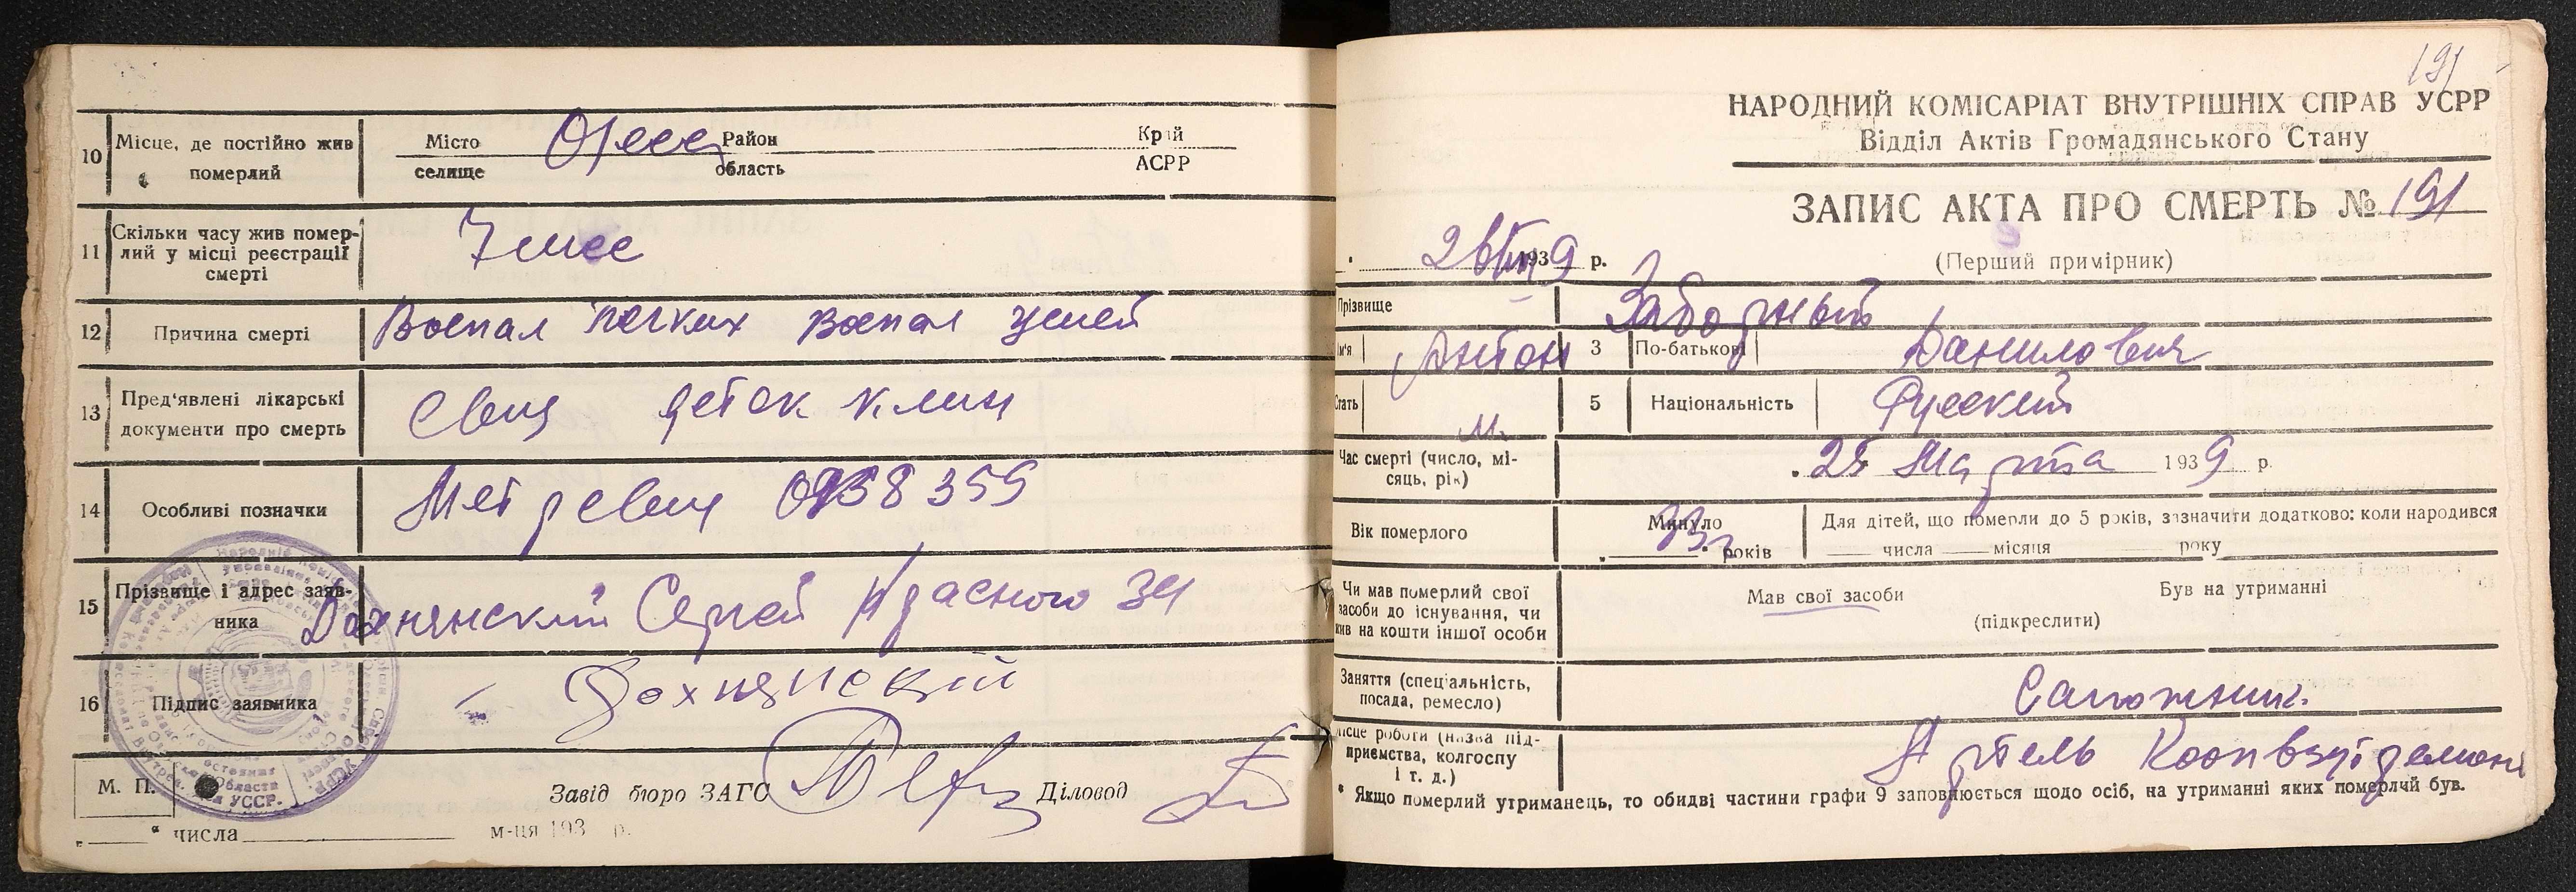 10 Місце, де постійно жив померлий
Місто селище Одесса Район область Край АСРР
11 Скільки часу жив помер-
лий у місці реєстрації
смерті
7 мес
12 Причина смерті Воспал легких воспал ушей
13 Пред'явлені лікарські
документи про смерть
клин
14 Особливі позначки
359
15 Прізвище і адрес заяв-
ника
Дохнянский Сергей Красного 34
16 Підпис заявника Дохнянский
М. П. Завід бюро ЗАГС Діловод
" числа м-ця 193 р.
191
НАРОДНИЙ КОМІСАРІАТ ВНУТРІШНІХ СПРАВ УСРР
Відділ Актів Громадянського Стану
ЗАПИС АКТА ПРО СМЕРТЬ № 191
1939 р. (Перший примірник)
Прізвище Заборный
Ім'я Антон 3 По-батькові Данилович
Стать м. 5 Національність Русский
Час смерті (число, мі-
сяць, рік)
25 Марта 1939 р.
Вік померлого Минуло 33 років
Для дітей, що померли до 5 років, зазначити додатково: коли народився
числа місяця року
Чи мав померлий свої
засоби до існування, чи
жив на кошти іншої особи
Мав свої засоби Був на утриманні
(підкреслити)
Заняття (спеціальність,
посада, ремесло)
Сапожник.
Місце роботи (назва під-
приємства, колгоспу
і т. д.)
Артель Коопвзутремонт
* Якщо померлий утриманець, то обидві частини графи 9 заповнюється щодо осіб, на утриманні яких померлий був.